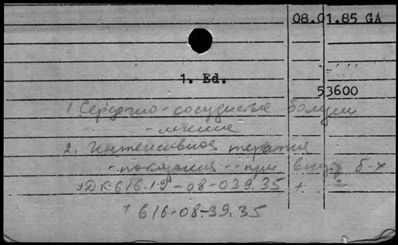 08.01.85 GA
1. Ed.
53600
1 Сердечно-сосудистые
- лечение
2. Интенсивная терапия
- показания - при внутр. б-х
УДК 616.12-08-039.35 +
+ 616-08-39.35